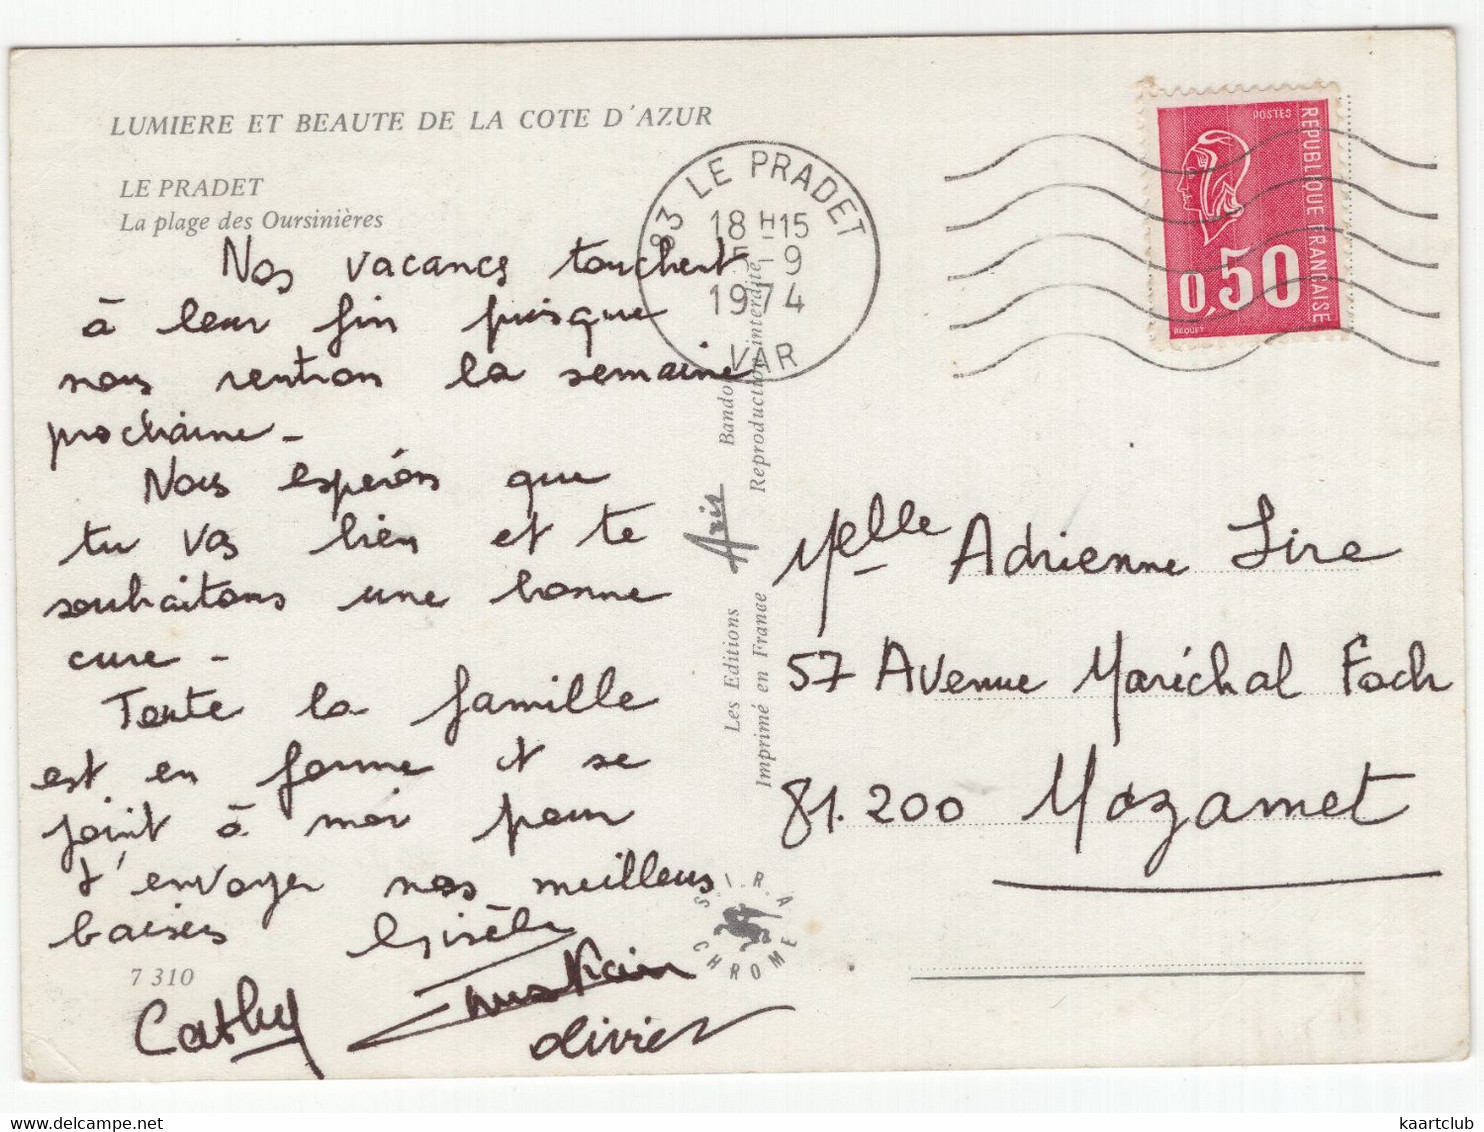 LUMIERE ET BEAUTE DE LA COTE D'AZUR
LE PRADET
La plage des Oursinières
Nos vacances touchent
à leur fin puisque
nous rentrons la semaine
prochaine -
Nous espérons que
tu vas bien et te
souhaitons une bonne
cure -
Toute la famille
est en forme et se
joint à moi pour
t'envoyer nos meilleurs
baisers Gisèle
7 310
Cathy Christian
Olivier
83 LE PRADET
18 H 15
5-9
1974
VAR
Les Editions Aris Bandol
Imprimé en France Reproduction interdite
S.I.R.A.
CHROME
POSTES
REPUBLIQUE FRANÇAISE
0,50
BEQUET
Melle Adrienne Sire
57 Avenue Maréchal Foch
81.200 Mazamet
kaartclub